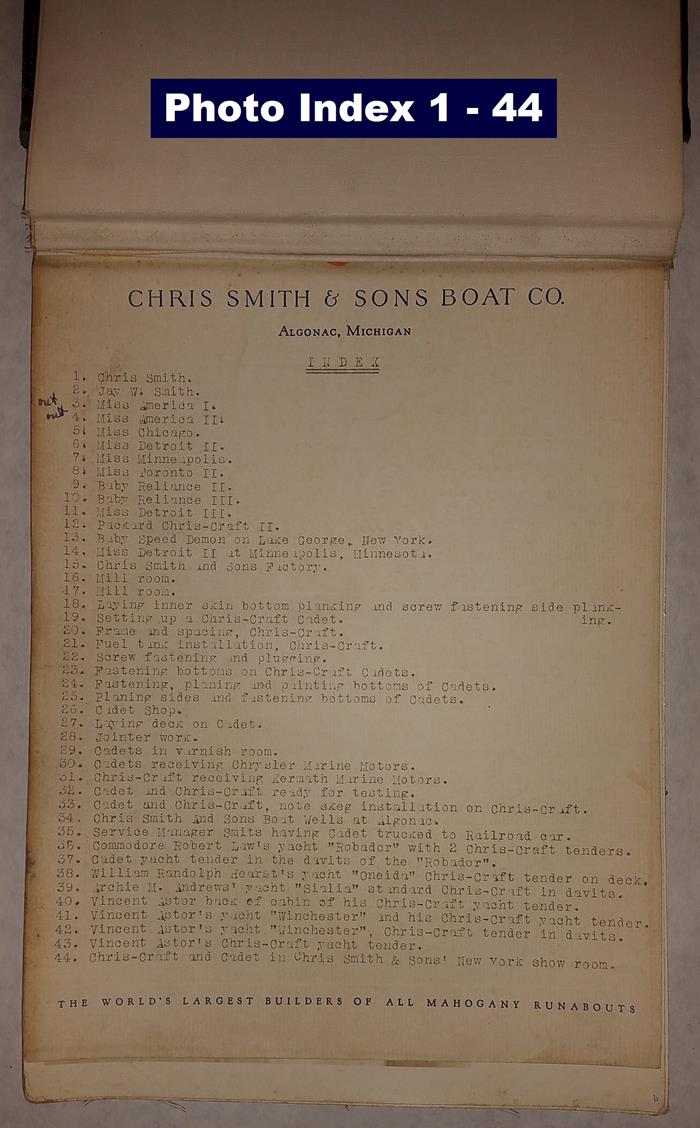 Photo Index 1 - 44
CHRIS SMITH & SONS BOAT CO.
ALGONAC, MICHIGAN
I N D E X
1. Chris Smith.
2. Jay W. Smith.
out 3. Miss America I.
out 4. Miss America II.
5. Miss Chicago.
6. Miss Detroit II.
7. Miss Minneapolis.
8. Miss Toronto II.
9. Baby Reliance II.
10. Baby Reliance III.
11. Miss Detroit III.
12. Packard Chris-Craft II.
13. Baby Speed Demon on Lake George, New York.
14. Miss Detroit II at Minneapolis, Minnesota.
15. Chris Smith and Sons Factory.
16. Mill room.
17. Mill room.
18. Laying inner skin bottom planking and screw fastening side plank-
19. Setting up a Chris-Craft Cadet. ing.
20. Frame and spacing, Chris-Craft.
21. Fuel tank installation, Chris-Craft.
22. Screw fastening and plugging.
23. Fastening bottoms on Chris-Craft Cadets.
24. Fastening, planing and painting bottoms of Cadets.
25. Planing sides and fastening bottoms of Cadets.
26. Cadet Shop.
27. Laying deck on Cadet.
28. Jointer work.
29. Cadets in varnish room.
30. Cadets receiving Chrysler Marine Motors.
31. Chris-Craft receiving Kermath Marine Motors.
32. Cadet and Chris-Craft ready for testing.
33. Cadet and Chris-Craft, note skeg installation on Chris-Craft.
34. Chris Smith And Sons Boat Wells at Algonac.
35. Service Manager Smits having Cadet trucked to Railroad car.
36. Commodore Robert Law's yacht "Robador" with 2 Chris-Craft tenders.
37. Cadet yacht tender in the davits of the "Robador".
38. William Randolph Hearst's yacht "Oneida" Chris-Craft tender on deck.
39. Archie M. Andrews' yacht "Sialia" standard Chris-Craft in davits.
40. Vincent Astor back of cabin of his Chris-Craft yacht tender.
41. Vincent Astor's yacht "Winchester" and his Chris-Craft yacht tender.
42. Vincent Astor's yacht "Winchester", Chris-Craft tender in davits.
43. Vincent Astor's Chris-Craft yacht tender.
44. Chris-Craft and Cadet in Chris Smith & Sons' New York show room.
THE WORLD'S LARGEST BUILDERS OF ALL MAHOGANY RUNABOUTS